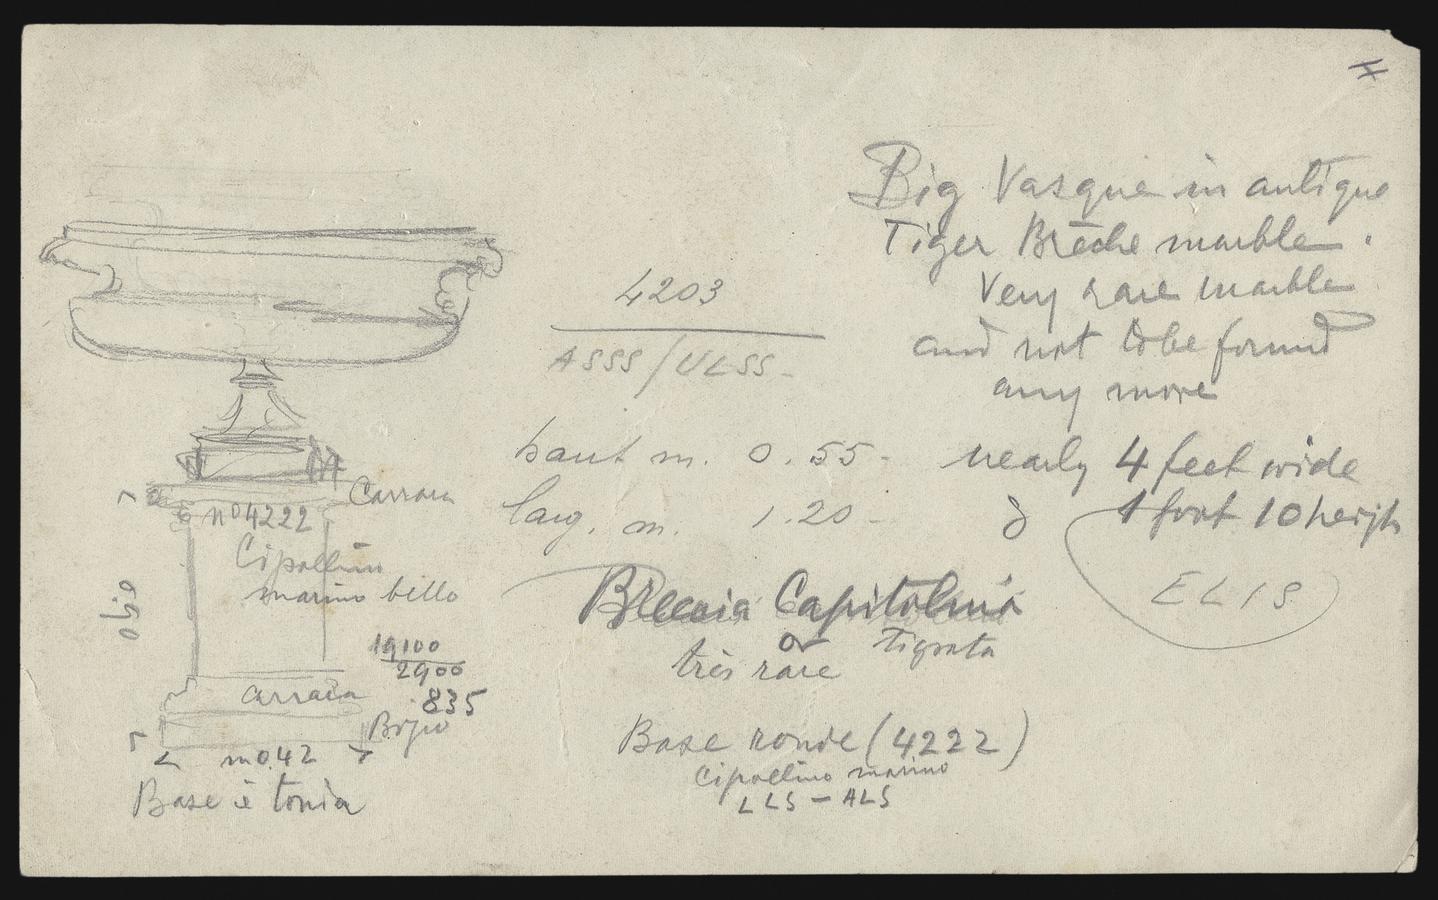 Big Vasque in antique
Tiger Brèche marble.
Very rare marble
and not to be found
any more
4203
ASSS/ULSS-
haut m. 0.55-
nearly 4 feet wide
larg. m. 1.20-
1 foot 10 heigh
ELIS
Breccia Capitolina
or Tigrata
très rare
Base ronde (4222)
Cipollino marino
LLS - ALS
Carrara
no 4222
Cipollino
marino bello
19100
2900
835
Carrara
Bigio
m 0.42
Base è tonda